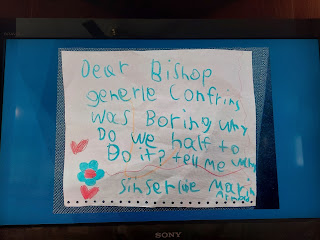 Dear Bishop
generle Confrins
was Boring why
Do we half to
Do it? tell me why
Sinserlie Marin
SONY